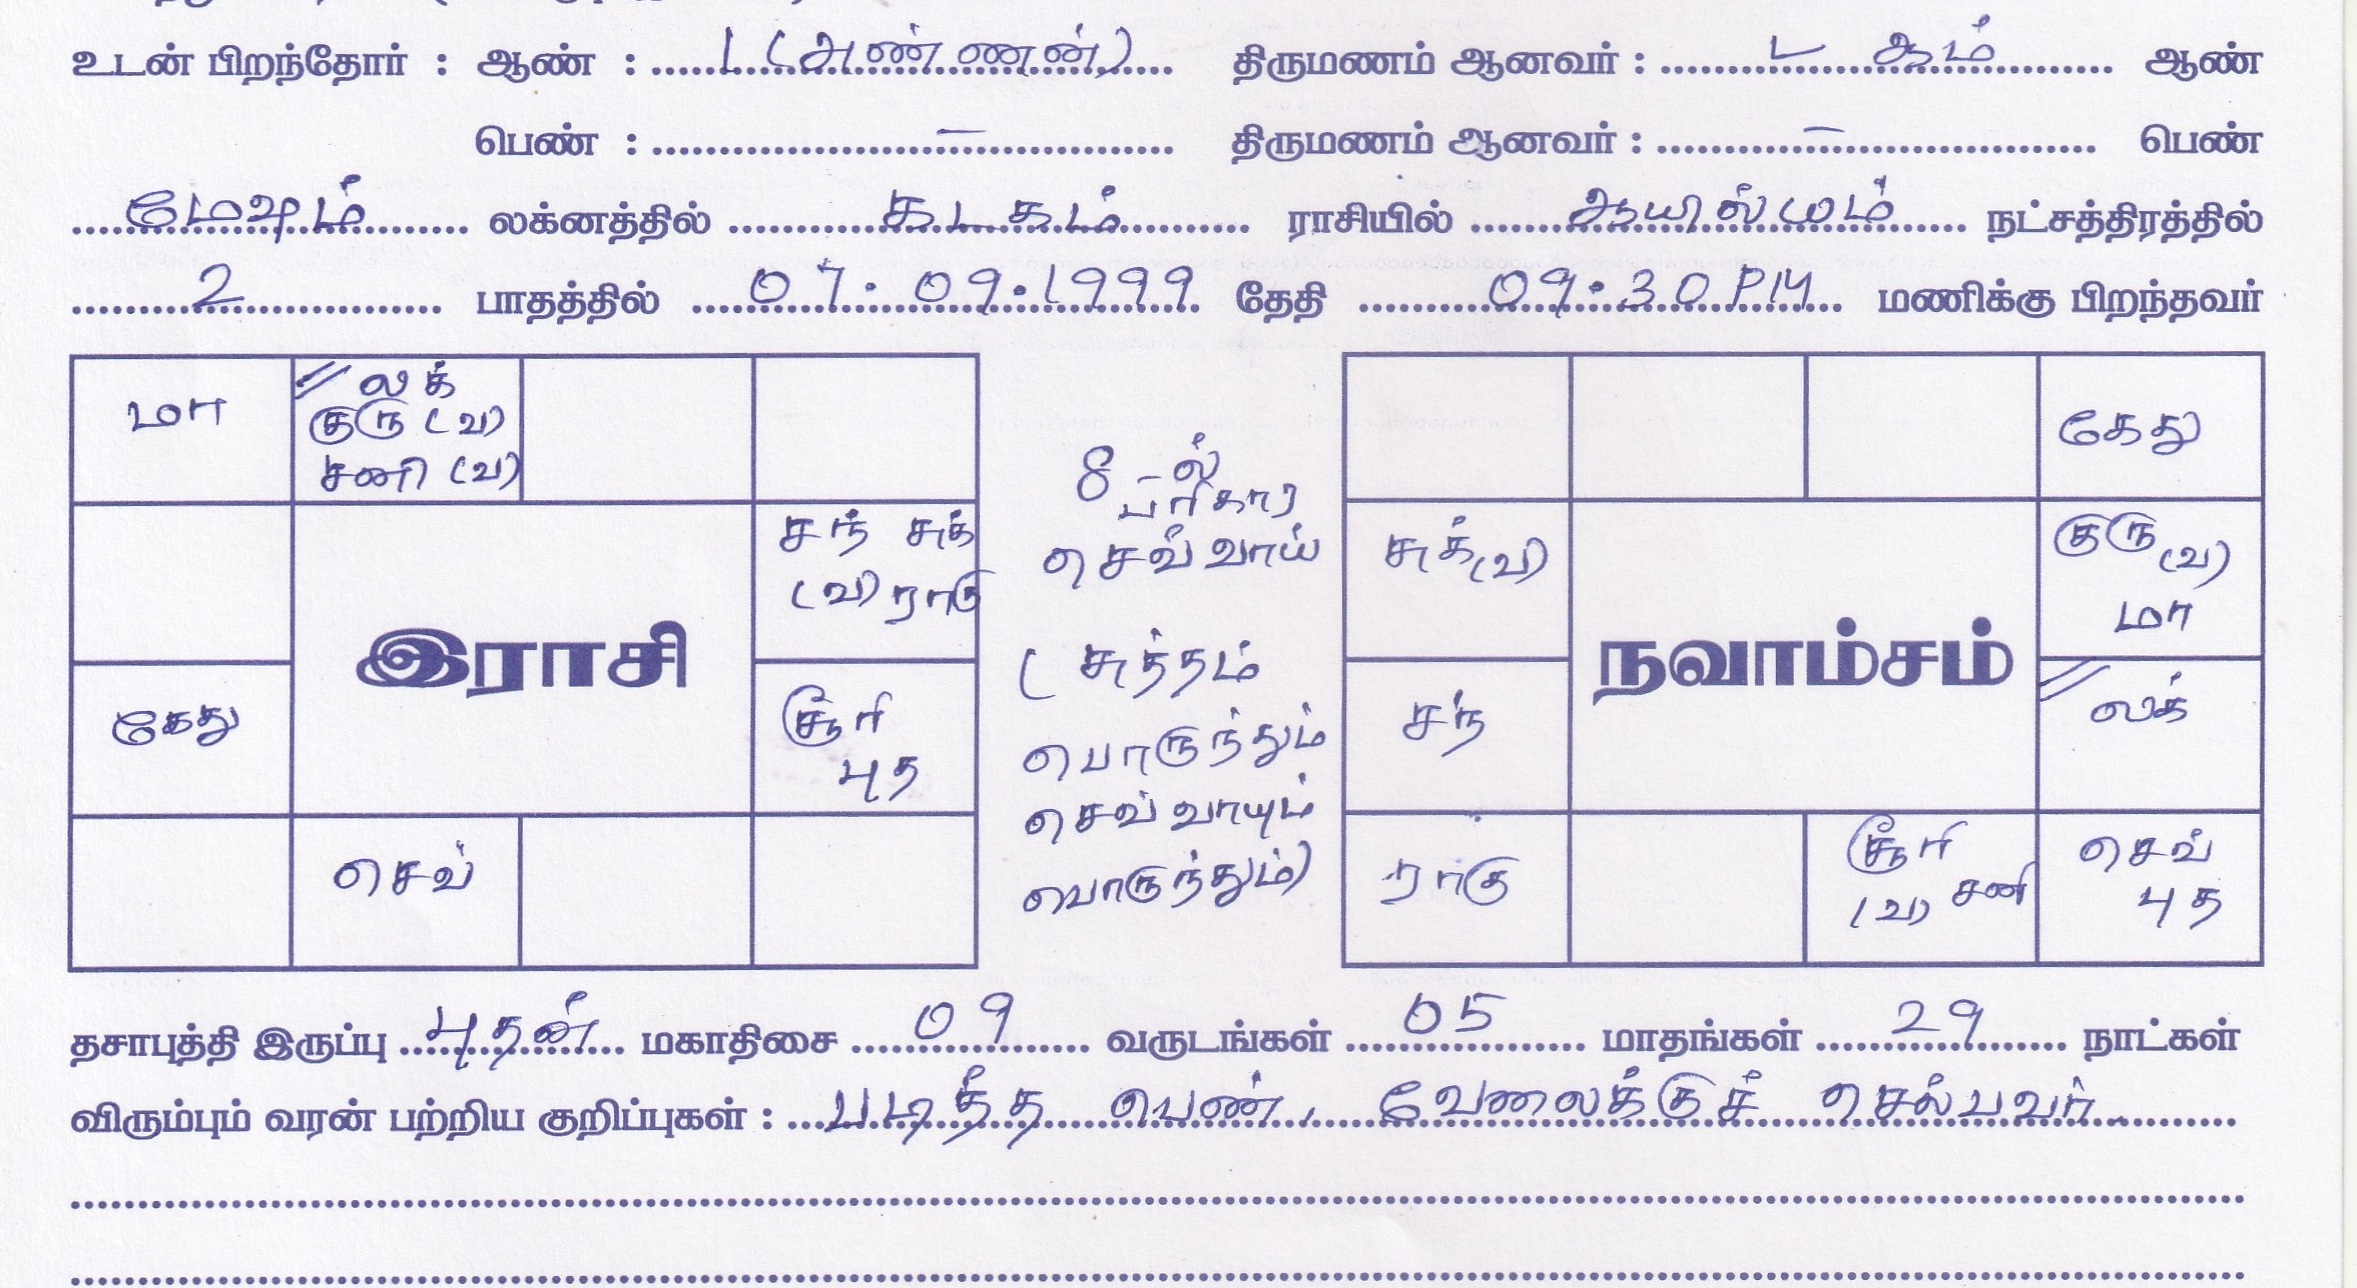 உடன் பிறந்தோர் : ஆண் : 1 (அண்ணன்) திருமணம் ஆனவர் : ஆம் ஆண்
பெண் : – திருமணம் ஆனவர் : – பெண்
மேஷம் லக்னத்தில் கடகம் ராசியில் ஆயில்யம் நட்சத்திரத்தில்
2 பாதத்தில் 07.09.1999 தேதி 09.30 PM மணிக்கு பிறந்தவர்
மா
லக்
குரு (வ)
சனி (வ)
சந் சுக்
(வ) ராகு
கேது
இராசி
சூரி
புத
செவ்
8-ல்
பரிகார
செவ்வாய்
(சுத்தம்
பொருந்தும்
செவ்வாயும்
பொருந்தும்)
கேது
சுக் (வ)
குரு (வ)
மா
சந்
நவாம்சம்
லக்
ராகு
சூரி
(வ) சனி
செவ்
புத
தசாபுத்தி இருப்பு புதன் மகாதிசை 09 வருடங்கள் 05 மாதங்கள் 29 நாட்கள்
விரும்பும் வரன் பற்றிய குறிப்புகள் : படித்த பெண், வேலைக்குச் செல்பவர்.